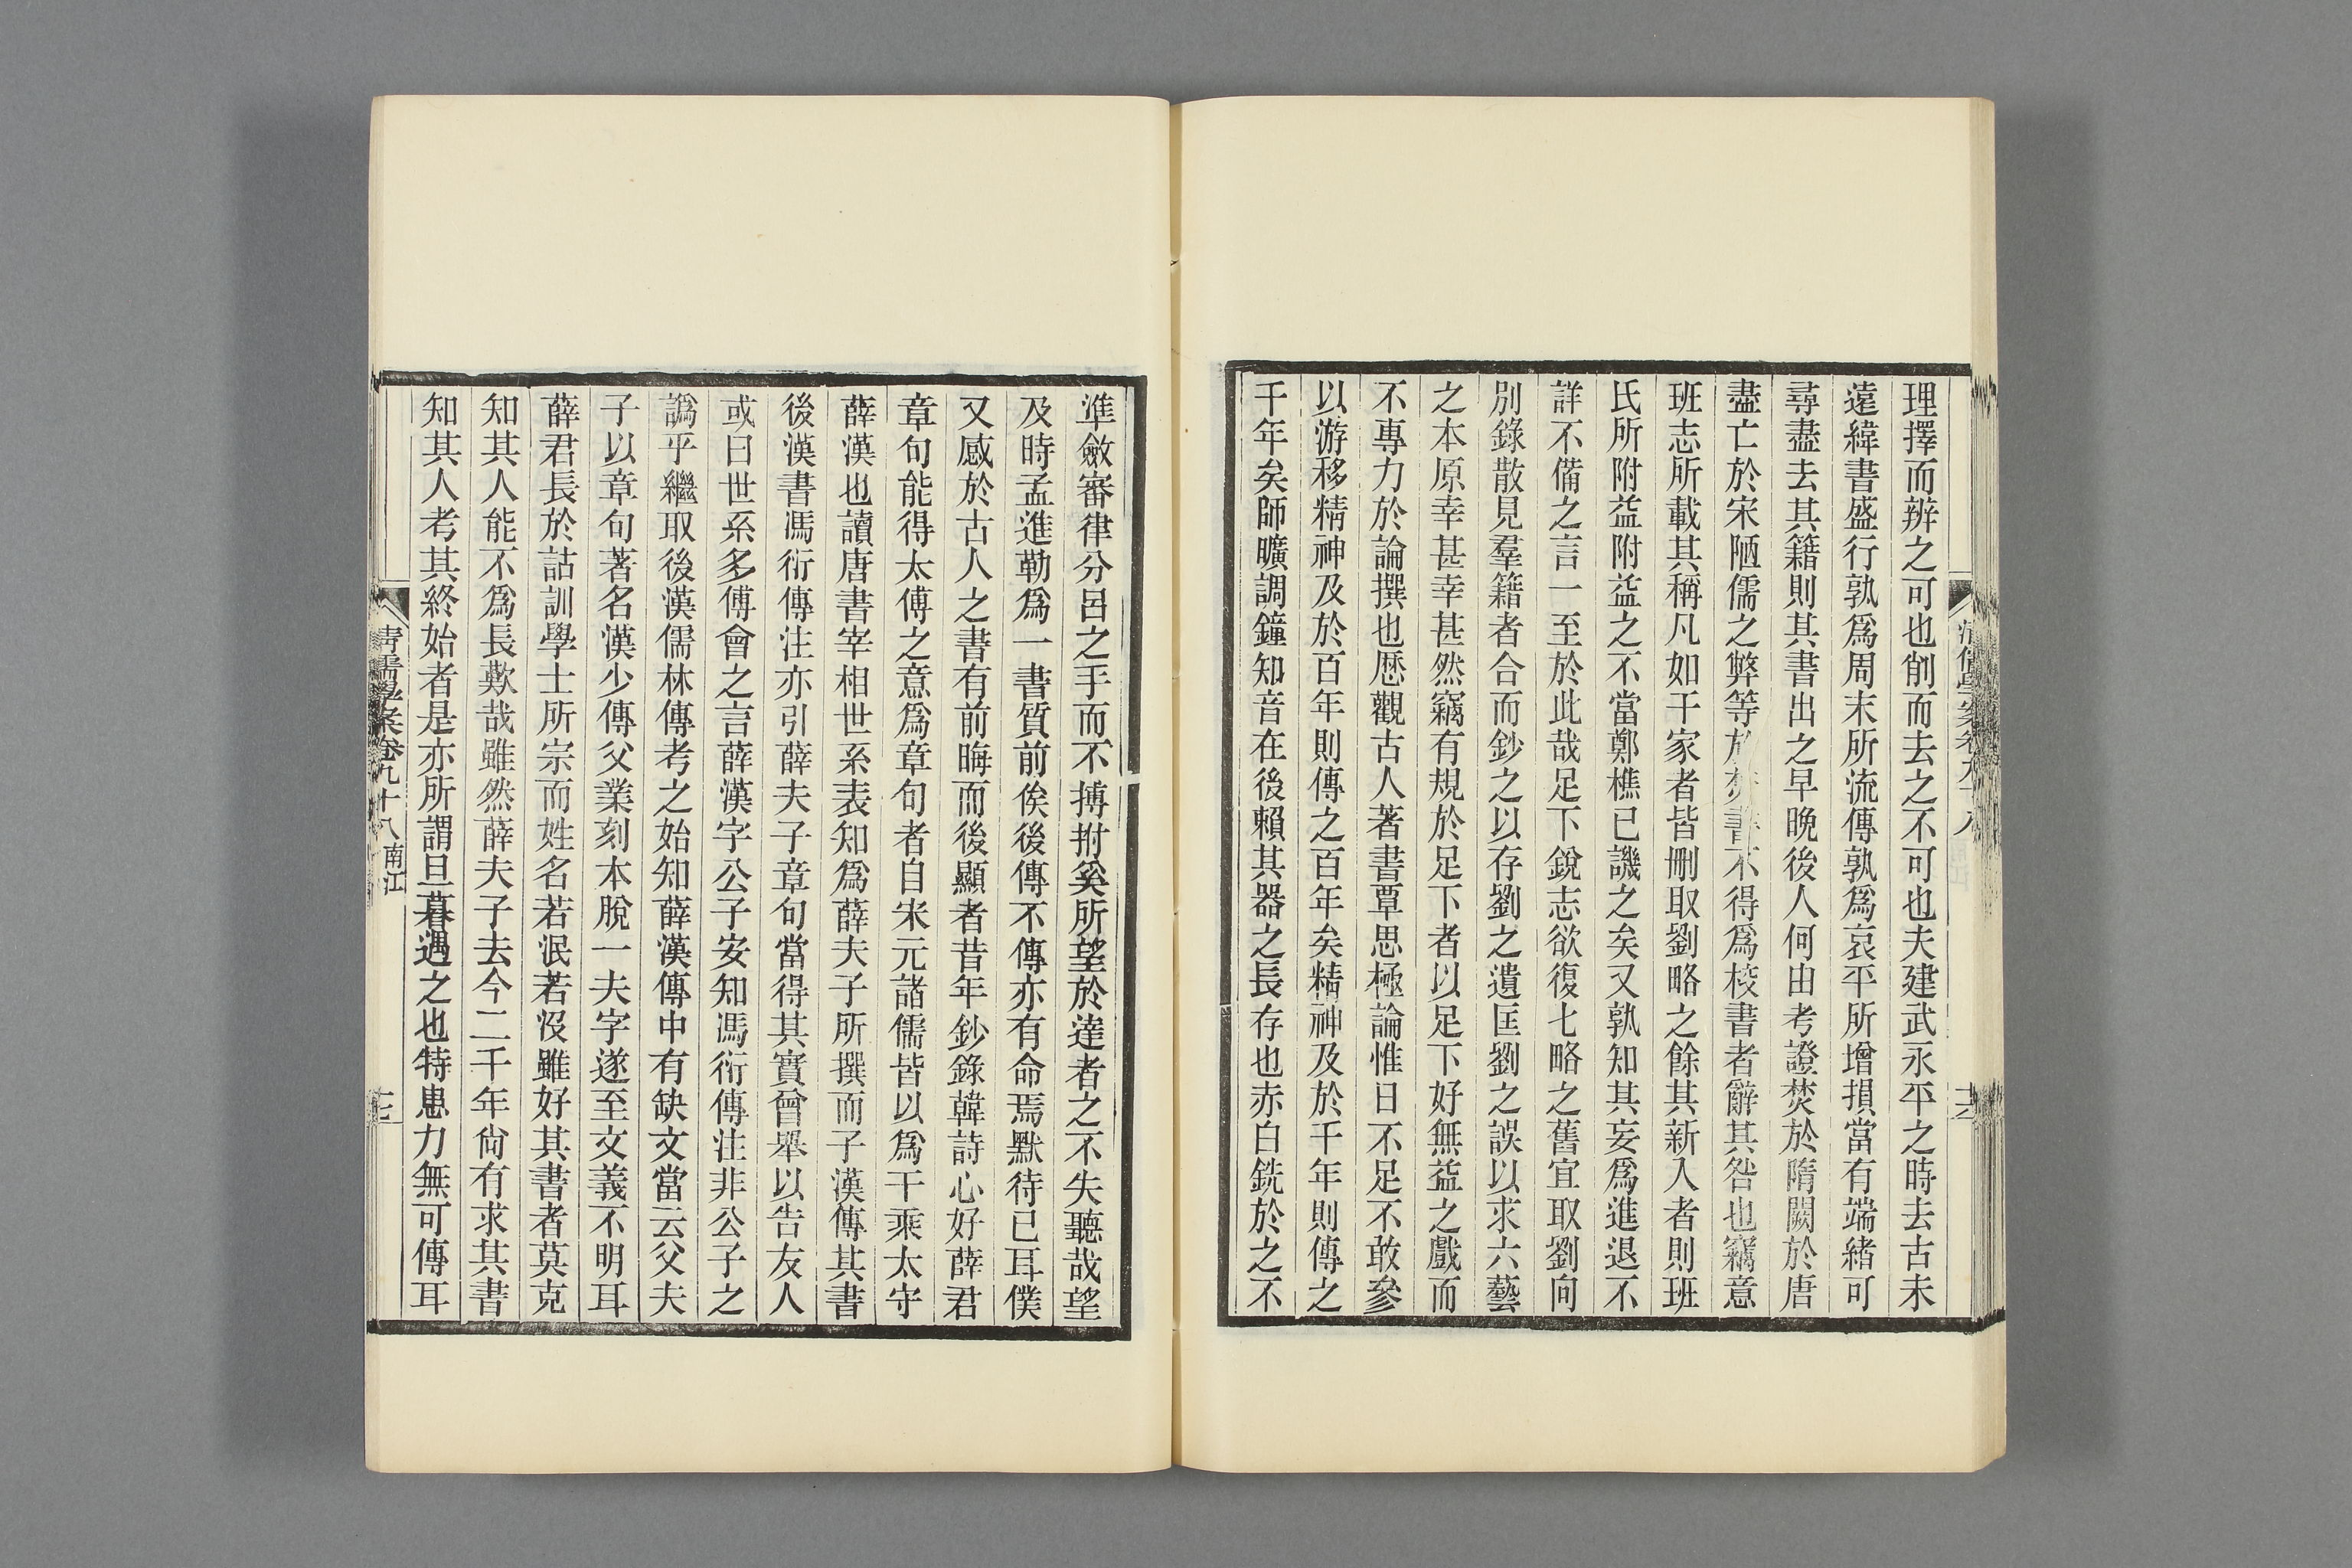 理擇而辨之可也削而去之不可也夫建武永平之時去古未
遠緯書盛行孰爲周末所流傳孰爲哀平所增損當有端緒可
尋盡去其籍則其書出之早晚後人何由考證焚於隋闕於唐
盡亡於宋陋儒之弊等於焚書不得爲校書者辭其咎也竊意
班志所載其稱凡如干家者皆刪取劉略之餘其新入者則班
氏所附益附益之不當鄭樵已譏之矣又孰知其妄爲進退不
詳不備之言一至於此哉足下銳志欲復七略之舊宜取劉向
別錄散見羣籍者合而鈔之以存劉之遺匡劉之誤以求六藝
之本原幸甚幸甚然竊有規於足下者以足下好無益之戲而
不專力於論撰也歷觀古人著書覃思極論惟日不足不敢參
以游移精神及於百年則傳之百年矣精神及於千年則傳之
千年矣師曠調鐘知音在後賴其器之長存也赤白銑於之不
準斂審律分呂之手而不搏拊奚所望於達者之不失聽哉望
及時孟進勒爲一書質前俟後傳不傳亦有命焉默待已耳僕
又感於古人之書有前晦而後顯者昔年鈔錄韓詩心好薛君
章句能得太傅之意爲章句者自宋元諸儒皆以爲千乘太守
薛漢也讀唐書宰相世系表知爲薛夫子所撰而子漢傳其書
後漢書馮衍傳注亦引薛夫子章句當得其實曾舉以告友人
或曰世系多傅會之言薛漢字公子安知馮衍傳注非公子之
譌平繼取後漢儒林傳考之始知薛漢傳中有缺文當云父夫
子以章句著名漢少傳父業刻本脫一夫字遂至文義不明耳
薛君長於詁訓學士所宗而姓名若泯若沒雖好其書者莫克
知其人能不爲長歎哉雖然薛夫子去今二千年尙有求其書
知其人考其終始者是亦所謂旦暮遇之也特患力無可傳耳
清儒學案卷九十八 南江